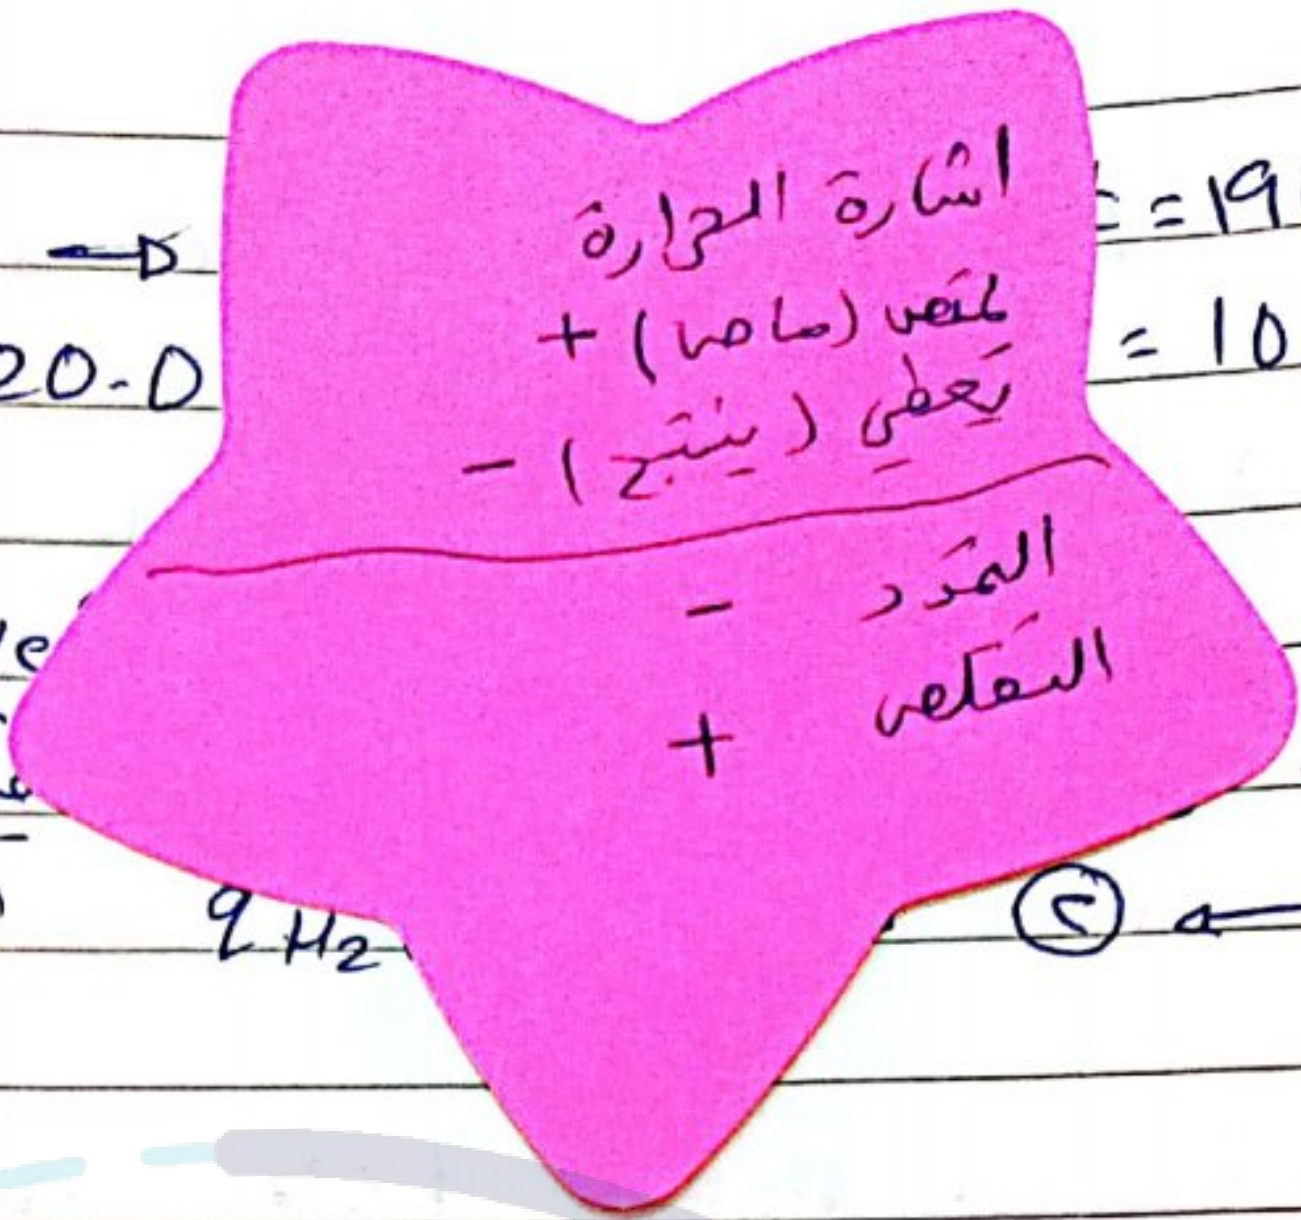 اشارة الحرارة
يمتص (ماص) +
يعطي (ينتج) -
التمدد -
التقلص +
= 19
20.0
= 10
9 H2